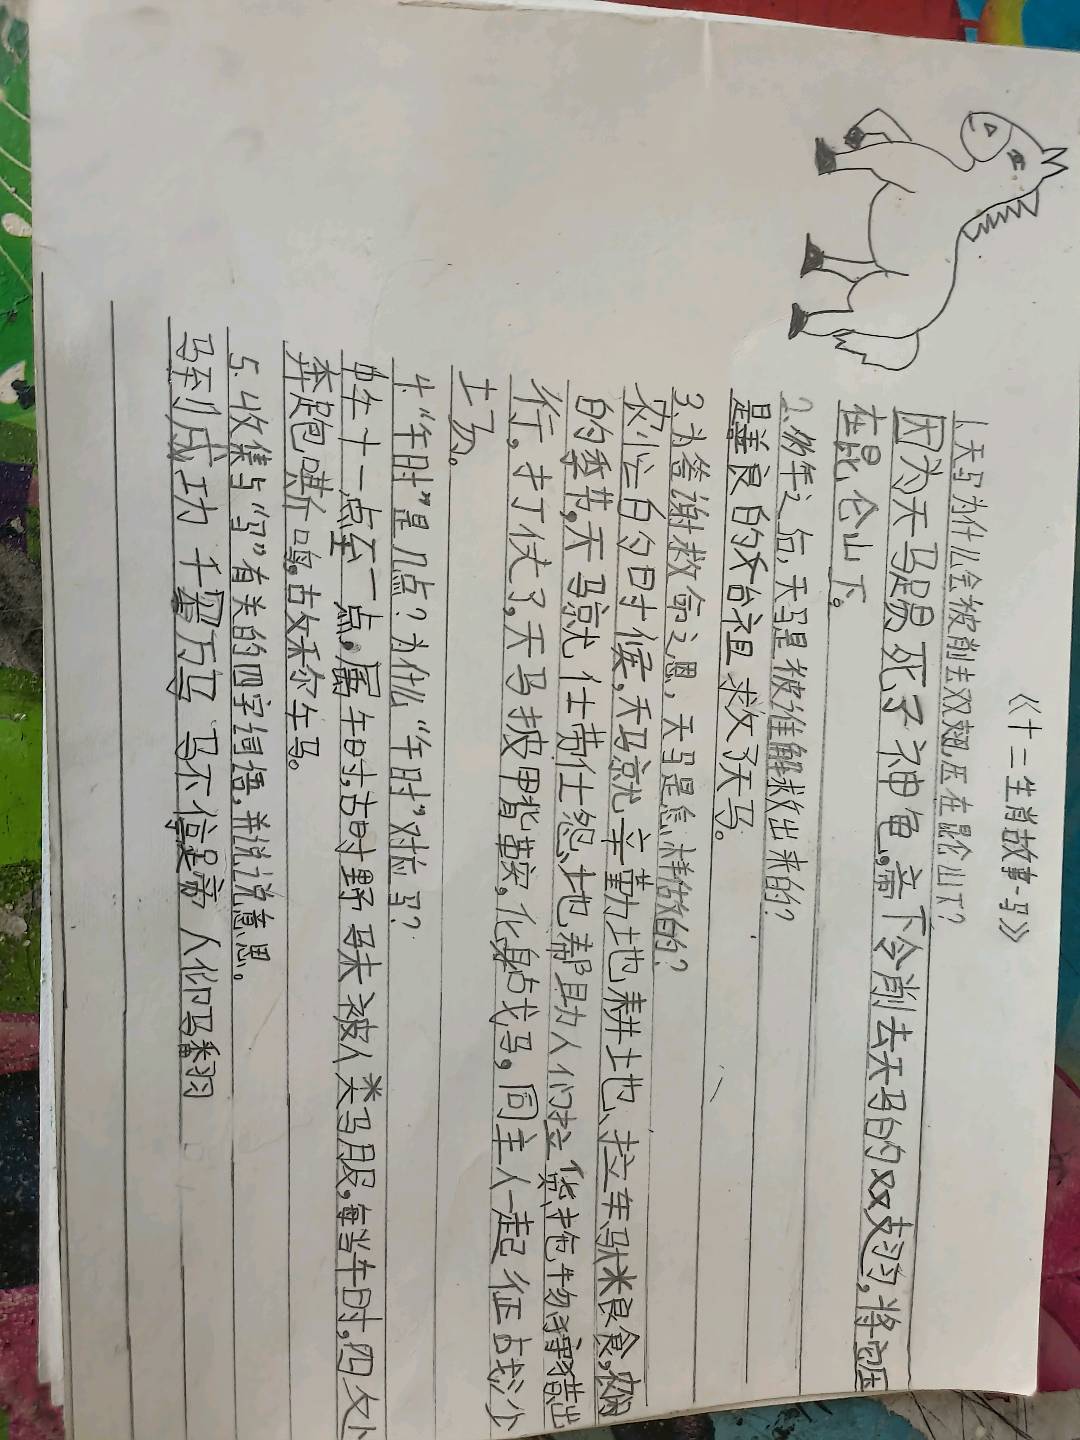 《十二生肖故事-马》
1.天马为什么会被削去双翅压在昆仑山下?
因为天马踢死了神龟,帝下令削去天马的双翅,将它压
在昆仑山下。
2.多年之后,天马是被谁解救出来的?
是善良的人台祖救了天马。
3.为答谢救命之恩,天马是怎样做的?
农忙的时候,天马就辛勤地耕地、拉车、驮米良食,
的季节,天马就任劳任怨地帮助人们拉货拖物,狩猎出
行,打仗了,天马披甲背鞍,化身战马,同主人一起征战沙
土易。
4."午时"是几点?为什么"午时"对应马?
十一点至一点,属午时,古时野马未被人类马服,每当午时,四处
奔跑嘶鸣,古文禾尔午马。
5.收集与"马"有关的四字词语,并说说意思。
马到成功 千军万马 马不停蹄 人仰马翻